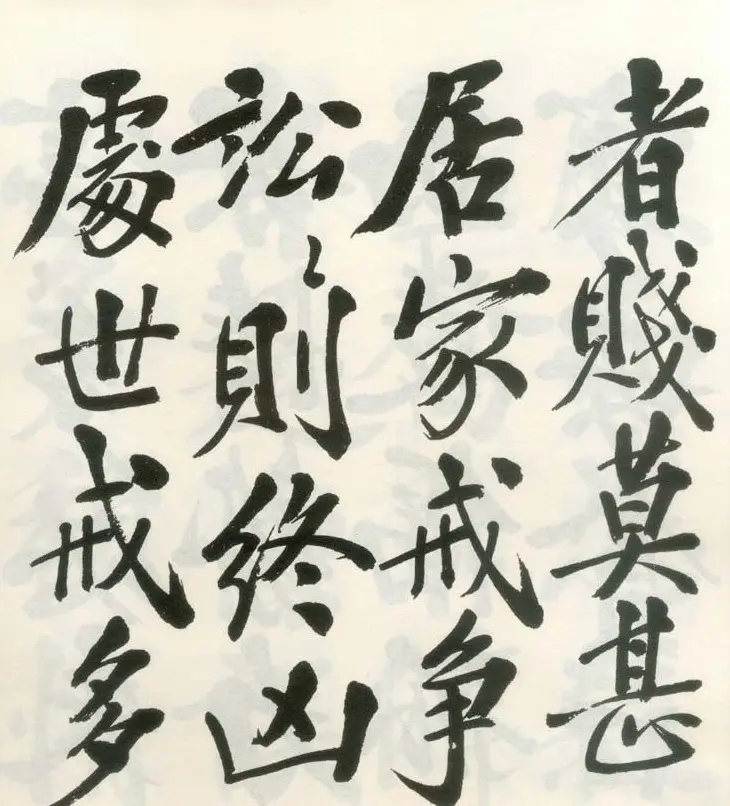 者賤莫甚
居家戒争
訟則終凶
處世戒多